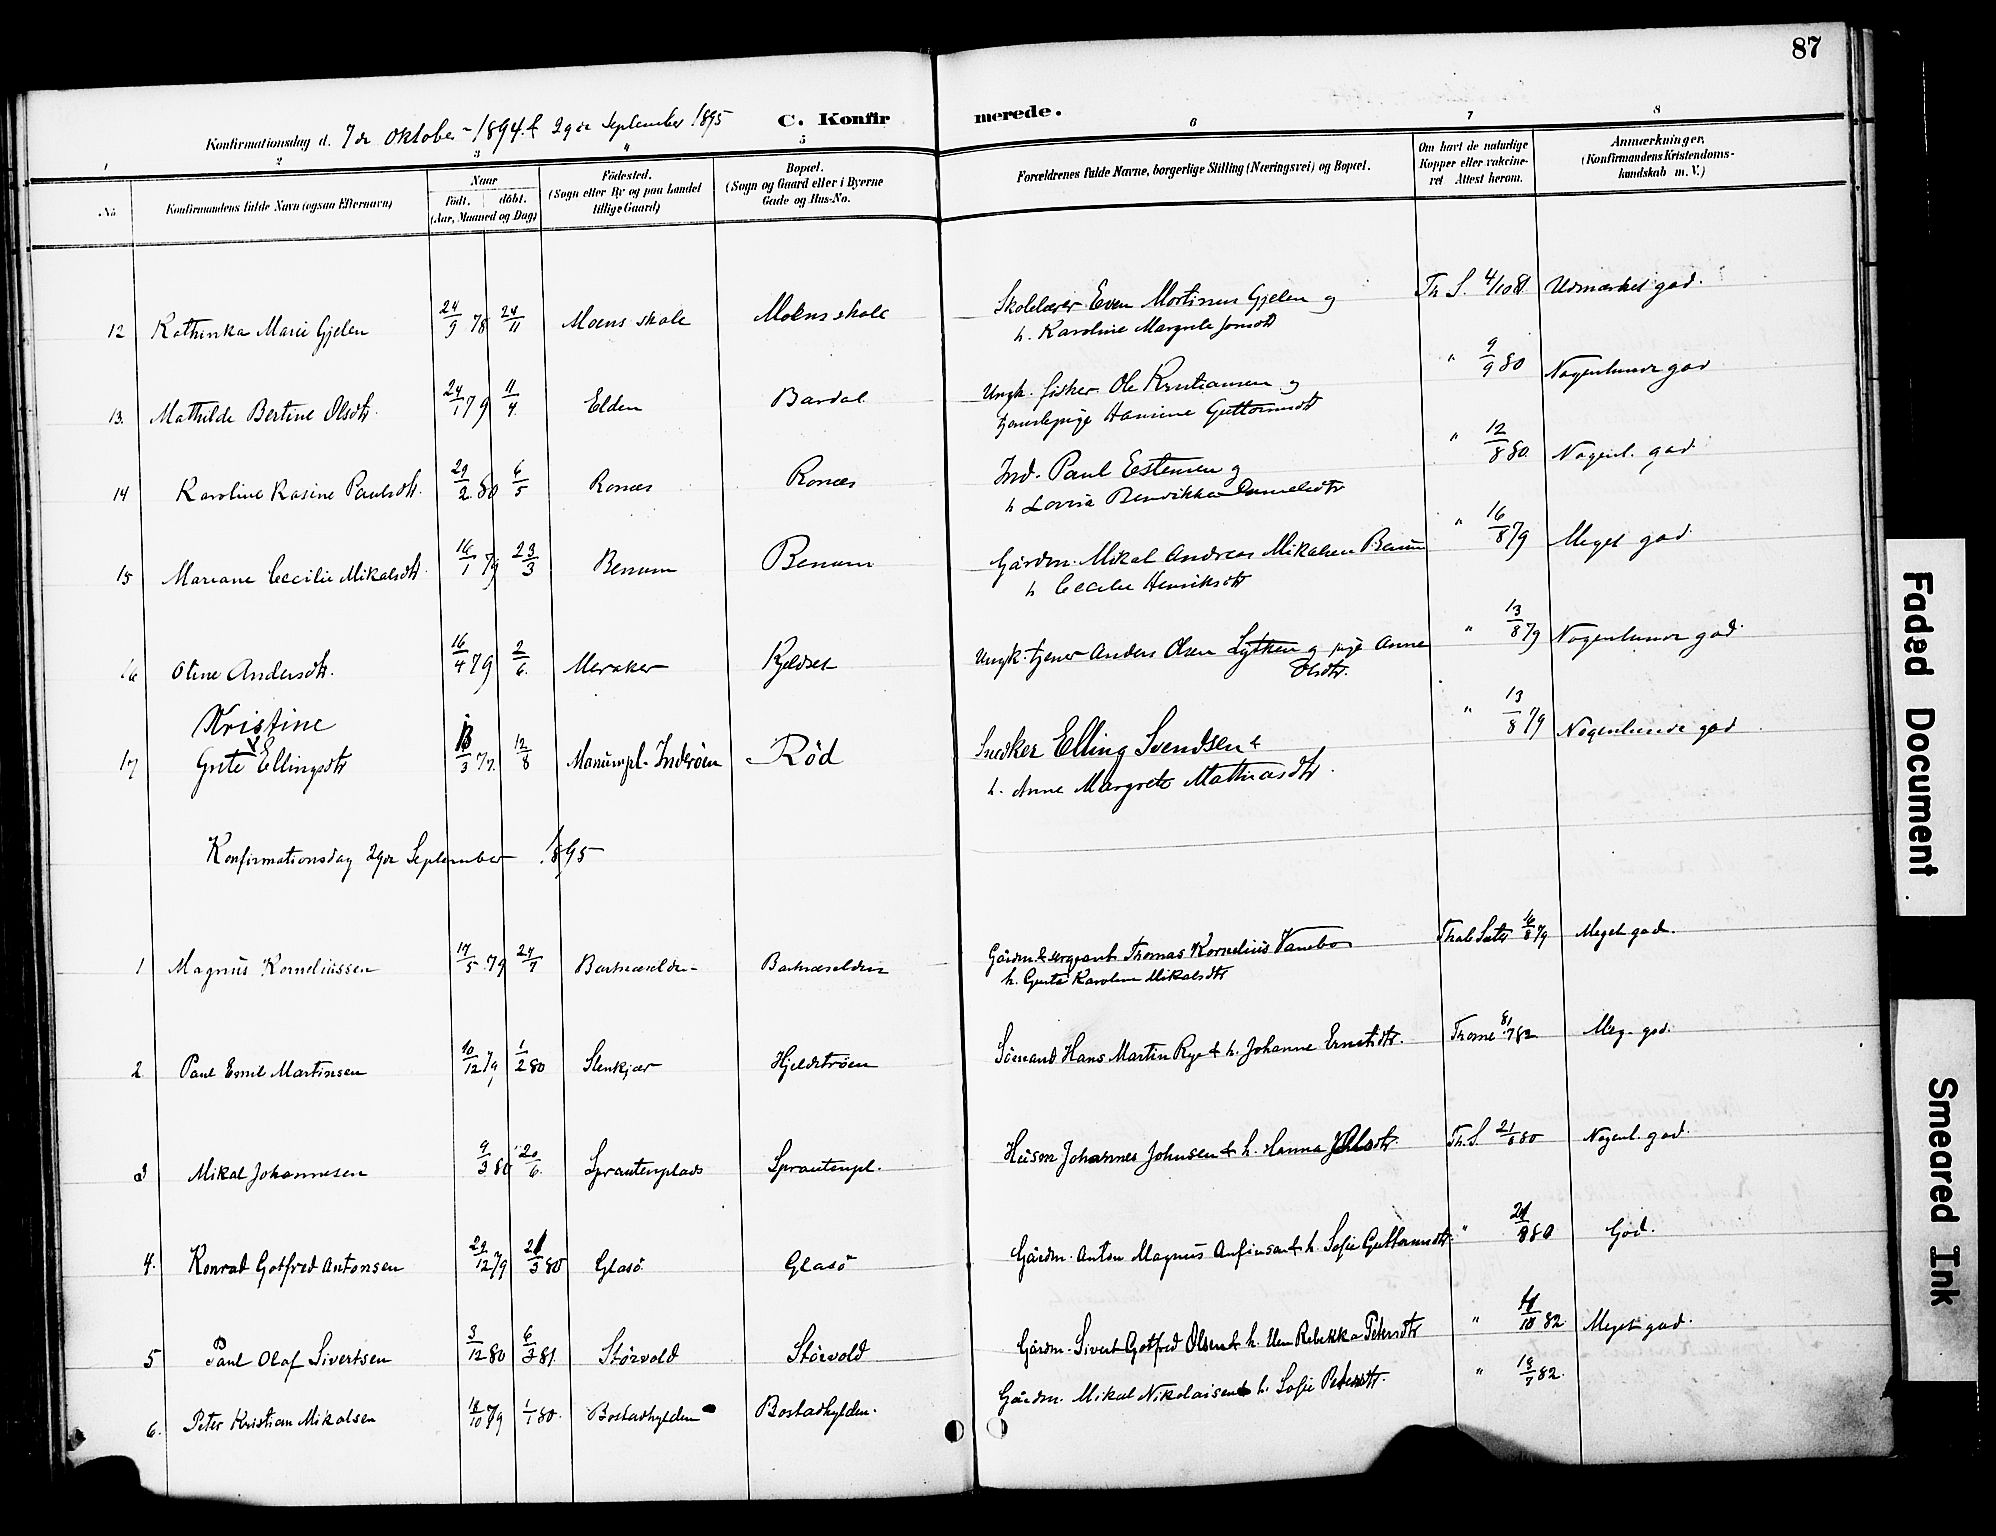 87
Konfirmationsdag d. 7de Oktober 1894 & 29de September 1895 C. Konfirmerede.
1 2 3 4 5 6 7 8
No Konfirmandens fulde Navn (ogsaa Efternavn)
Naar
Födt. döbt.
(Aar, Maaned og Dag)
Födested.
(Sogn eller By og paa Landet
tillige Gaard)
Bopæl.
(Sogn og Gaard eller i Byerne
Gade og Hus-No.
Forældrenes fulde Navne, borgerlige Stilling (Næringsvei) og Bopæl.
Om havt de naturlige
Kopper eller vaccine-
ret Attest herom.
Anmærkninger,
(Konfirmandens Kristendoms-
kundskab m. V.)
12 Kathinka Marie Gjelen 24/9 78 24/11 Moens skole Moens skole Skolelærer Even Mortinus Gjelen og Th. S. 4/10 81 Udmærket god.
h. Karoline Margrete Jonsdtr
13. Mathilde Bertine Olsdtr. 24/1 79 11/4. Elden Bardal Ungk. fisker Ole Kristiansen og " 9/9 80 Nogenlunde god
tjenestepige Hansine Guttormsdtr
14 Karoline Rasine Paulsdtr. 29/2 80 6/5 Ronæs Ronæs Ind. Paul Estensen og " 12/8 80. Nogenl. god
h Lovise Bendikke Danielsdtr
15 Mariane Cecilie Mikalsdtr. 16/1 79 23/3 Benum Benum Gårdm. Mikal Andreas Mikalsen Benum " 16/8 79 Meget god
h Cecilie Henriksdtr
16 Oline Andersdtr. 16/4 79 2/6. Meraker Kjeldset Ungk. tjener Anders Olsen Lytken og pige Anne " 13/8 79 Nogenlunde god.
Olsdtr.
Kristine
17 Grete Ellingsdtr 13/3 77. 12/8 Manumpl. Inderöen Röd Snedker Elling Svendsen & " 13/8 79 Nogenlunde god
h. Anne Margrete Mathiasdtr.
Konfirmationsdag 29de September 1895
1 Magnus Korneliussen 17/5 79 27/7 Bartnæselden Bartnæselden Gårdm. & sergeant Thomas Kornelius Vanebo Th. Sæter 16/8 79 Meget god.
h. Gurta Karoline Mikalsdtr
2 Paul Emil Martinsen 10/12 79 1/2 80 Stenkjær Hjeldströen Sömand Hans Martin Rye & h. Johanne Ernstdtr. Thorne 8/7 82 Meg. god.
3 Mikal Johannesen 9/3 80 20/6. Sprautenplads Sprautenpl. Husm Johannes Johnsen & h. Hanna Th. S. 21/8 80 Nogenl. god.
4. Konrad Gotfred Antonsen 29/12 79 21/3 80 Glasö Glasö Gårdm. Anton Magnus Anfinsen & h. Sofie Guttormsdtr " 21/8 80 God.
5 Paul Olaf Sivertsen 3/12 80 6/2 81. Störvold Störvold Gårdm. Sivert Gotfred Olsen & h. Elen Rebekka Petersdtr " 11/10 82. Meget god.
6. Peter Kristian Mikalsen 18/10 79 1/1 80. Bostadhylden Bostadhylden. Gårdm. Mikal Nikolaisen & h. Sofie Petersdtr. " 18/7 82.
Faded Document
Smeared Ink